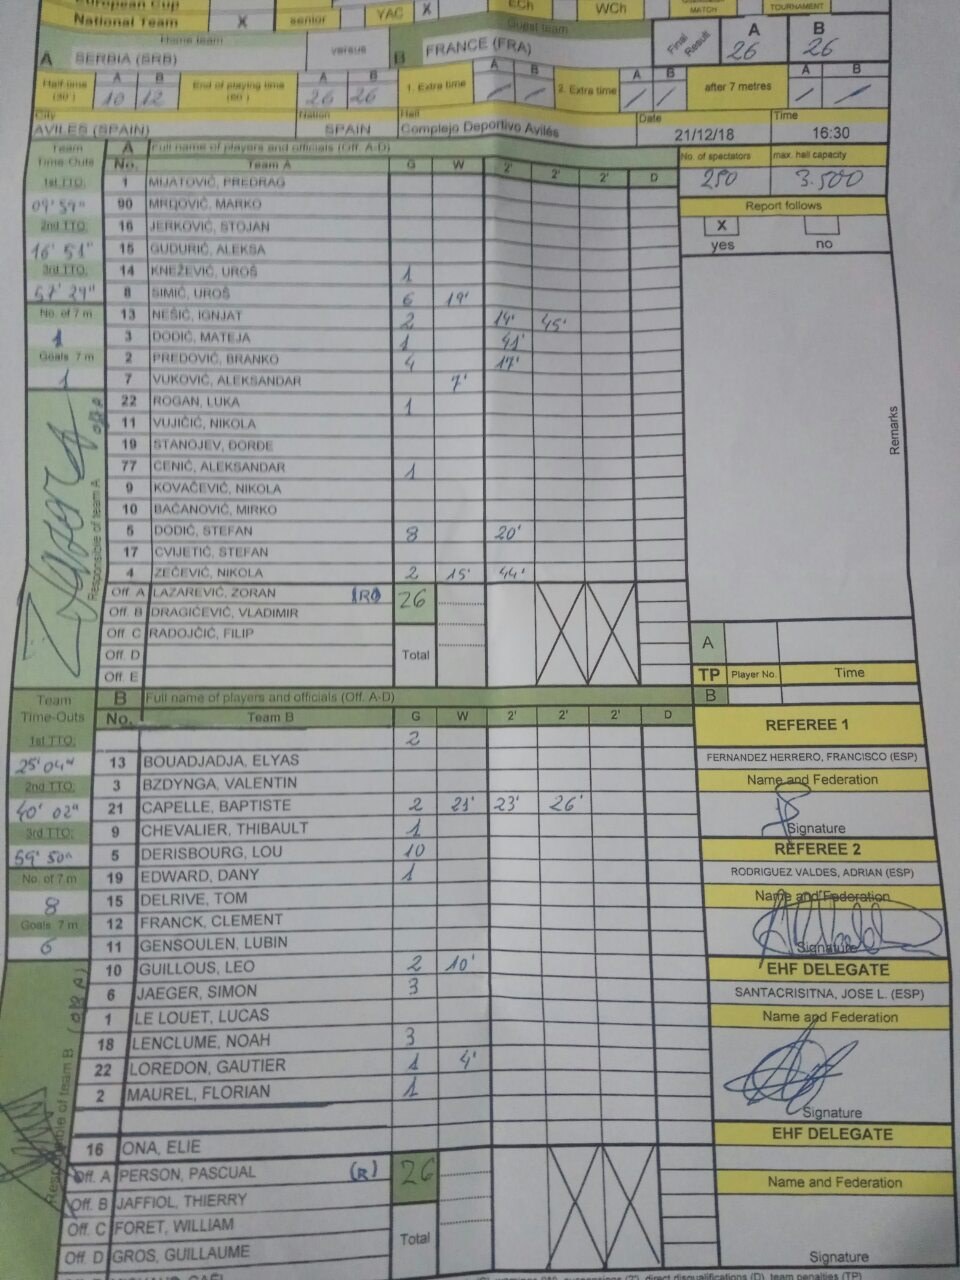 European Cup
National Team X senior YAC X ECh WCh MATCH TOURNAMENT
Home team versus Guest team
A SERBIA (SRB) B FRANCE (FRA) Final Result A 26 B 26
Half-time (30') A 10 B 12 End of playing time (60') A 26 B 26 1. Extra time A / B / 2. Extra time A / B / after 7 metres A / B /
City Nation Hall Date Time
AVILES (SPAIN) SPAIN Complejo Deportivo Avilés 21/12/18 16:30
Team Time-Outs A Full name of players and officials (Off. A-D) No. of spectators max. hall capacity
No. Team A G W 2' 2' 2' D 250 3.500
1st TTO: 09' 59"
2nd TTO: 16' 51"
3rd TTO: 57' 29"
No. of 7 m 1
Goals 7 m 1
Report follows
X yes no
1 MIJATOVIĆ, PREDRAG
90 MRĐOVIĆ, MARKO
16 JERKOVIĆ, STOJAN
15 GUDURIĆ, ALEKSA
14 KNEŽEVIĆ, UROŠ 1
8 SIMIĆ, UROŠ 6 19'
13 NEŠIĆ, IGNJAT 2 14' 45'
3 DODIĆ, MATEJA 1 41'
2 PREDOVIĆ, BRANKO 4 17'
7 VUKOVIĆ, ALEKSANDAR 7'
22 ROGAN, LUKA 1
11 VUJIČIĆ, NIKOLA
19 STANOJEV, ĐORĐE
77 CENIĆ, ALEKSANDAR 1
9 KOVAČEVIĆ, NIKOLA
10 BAĆANOVIĆ, MIRKO
5 DODIĆ, STEFAN 8 20'
17 CVIJETIĆ, STEFAN
4 ZEČEVIĆ, NIKOLA 2 15' 44'
Off. A LAZAREVIĆ, ZORAN (R) 26
Off. B DRAGIĆEVIĆ, VLADIMIR
Off. C RADOJČIĆ, FILIP Total
Off. D
Off. E
Responsible of team A off A
Remarks
A
TP Player No. Time
B
Team Time-Outs B Full name of players and officials (Off. A-D)
No. Team B G W 2' 2' 2' D
1st TTO: 25' 04"
2nd TTO: 40' 02"
3rd TTO: 59' 50"
No. of 7 m 8
Goals 7 m 6
2
13 BOUADJADJA, ELYAS
3 BZDYNGA, VALENTIN
21 CAPELLE, BAPTISTE 2 21' 23' 26'
9 CHEVALIER, THIBAULT 1
5 DERISBOURG, LOU 10
19 EDWARD, DANY 1
15 DELRIVE, TOM
12 FRANCK, CLEMENT
11 GENSOULEN, LUBIN
10 GUILLOUS, LEO 2 10'
6 JAEGER, SIMON 3
1 LE LOUET, LUCAS
18 LENCLUME, NOAH 3
22 LOREDON, GAUTIER 1 4'
2 MAUREL, FLORIAN 1
16 ONA, ELIE
Off. A PERSON, PASCUAL (R) 26
Off. B JAFFIOL, THIERRY
Off. C FORET, WILLIAM Total
Off. D GROS, GUILLAUME
Responsible of team B (off A)
REFEREE 1
FERNANDEZ HERRERO, FRANCISCO (ESP)
Name and Federation
Signature
REFEREE 2
RODRIGUEZ VALDES, ADRIAN (ESP)
Name and Federation
Signature
EHF DELEGATE
SANTACRISITNA, JOSE L. (ESP)
Name and Federation
Signature
EHF DELEGATE
Name and Federation
Signature
suspensions (2'), direct disqualifications (D), team penalties (TP)